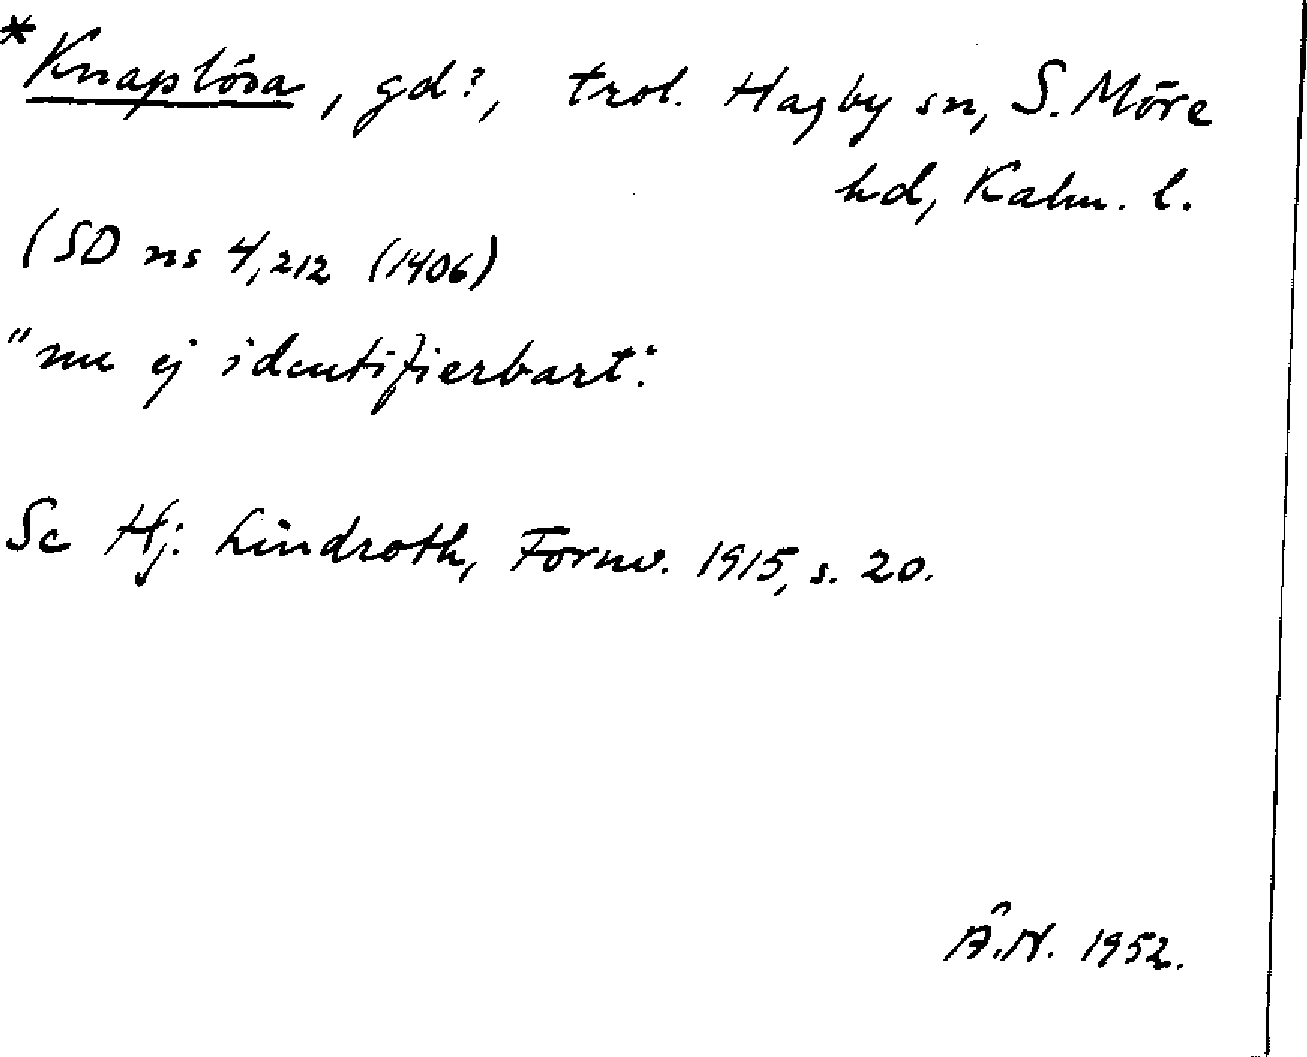 *Knaplösa, gd?, trol. Hagby sn, S. Möre
hd, Kalm. l.
(SD ns 4,212 (1406)
"nu ej identifierbart".
Se Hj. Lindroth, Fornv. 1915, s. 20.
Å.N. 1952.